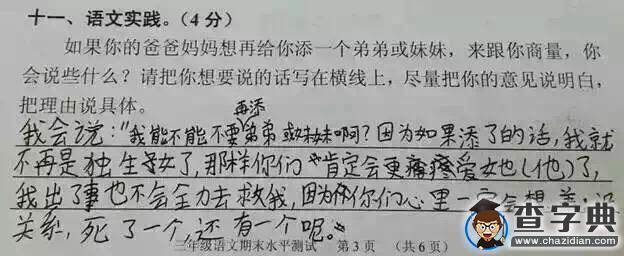 十一、语文实践。(4分)
如果你的爸爸妈妈想再给你添一个弟弟或妹妹，来跟你商量，你
会说些什么？请把你想要说的话写在横线上，尽量把你的意见说明白，
把理由说具体。
再添
我会说："我能不能不要弟弟或妹妹啊？因为如果添了的话，我就
不再是独生子女了，那样你们肯定会更疼爱她(他)了，
我出了事也不会全力去救我，因为你们心里一定会想着：没
关系，死了一个，还有一个呢。"
三年级语文期末水平测试 第3页 （共6页）
查字典
www.chazidian.com